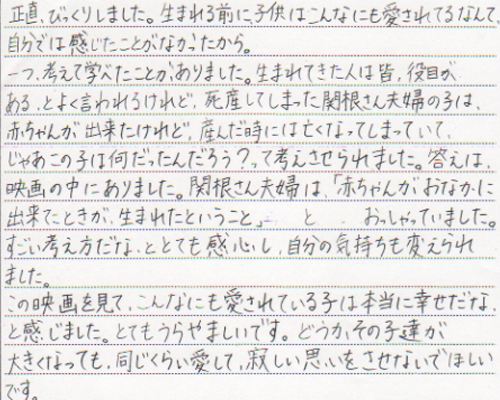 正直、びっくりしました。生まれる前に子供はこんなにも愛されてるなんて
自分では感じたことがなかったから。
一つ、考えて学べたことがありました。生まれてきた人は皆、役目が
ある、とよく言われるけれど、死産してしまった関根さん夫婦の子は、
赤ちゃんが出来たけれど、産んだ時には亡くなってしまっていて、
じゃあこの子は何だったんだろう?って考えさせられました。答えは、
映画の中にありました。関根さん夫婦は、「赤ちゃんがおなかに
出来てときが、生まれたということ」 と おっしゃっていました。
すごい考え方だな、ととても感心し、自分の気持ちも変えられ
ました。
この映画を見て、こんなにも愛されている子は本当に幸せだな、
と感じました。とてもうらやましいです。どうか、その子達が
大きくなっても、同じくらい愛して、寂しい思いをさせないでほしい
です。